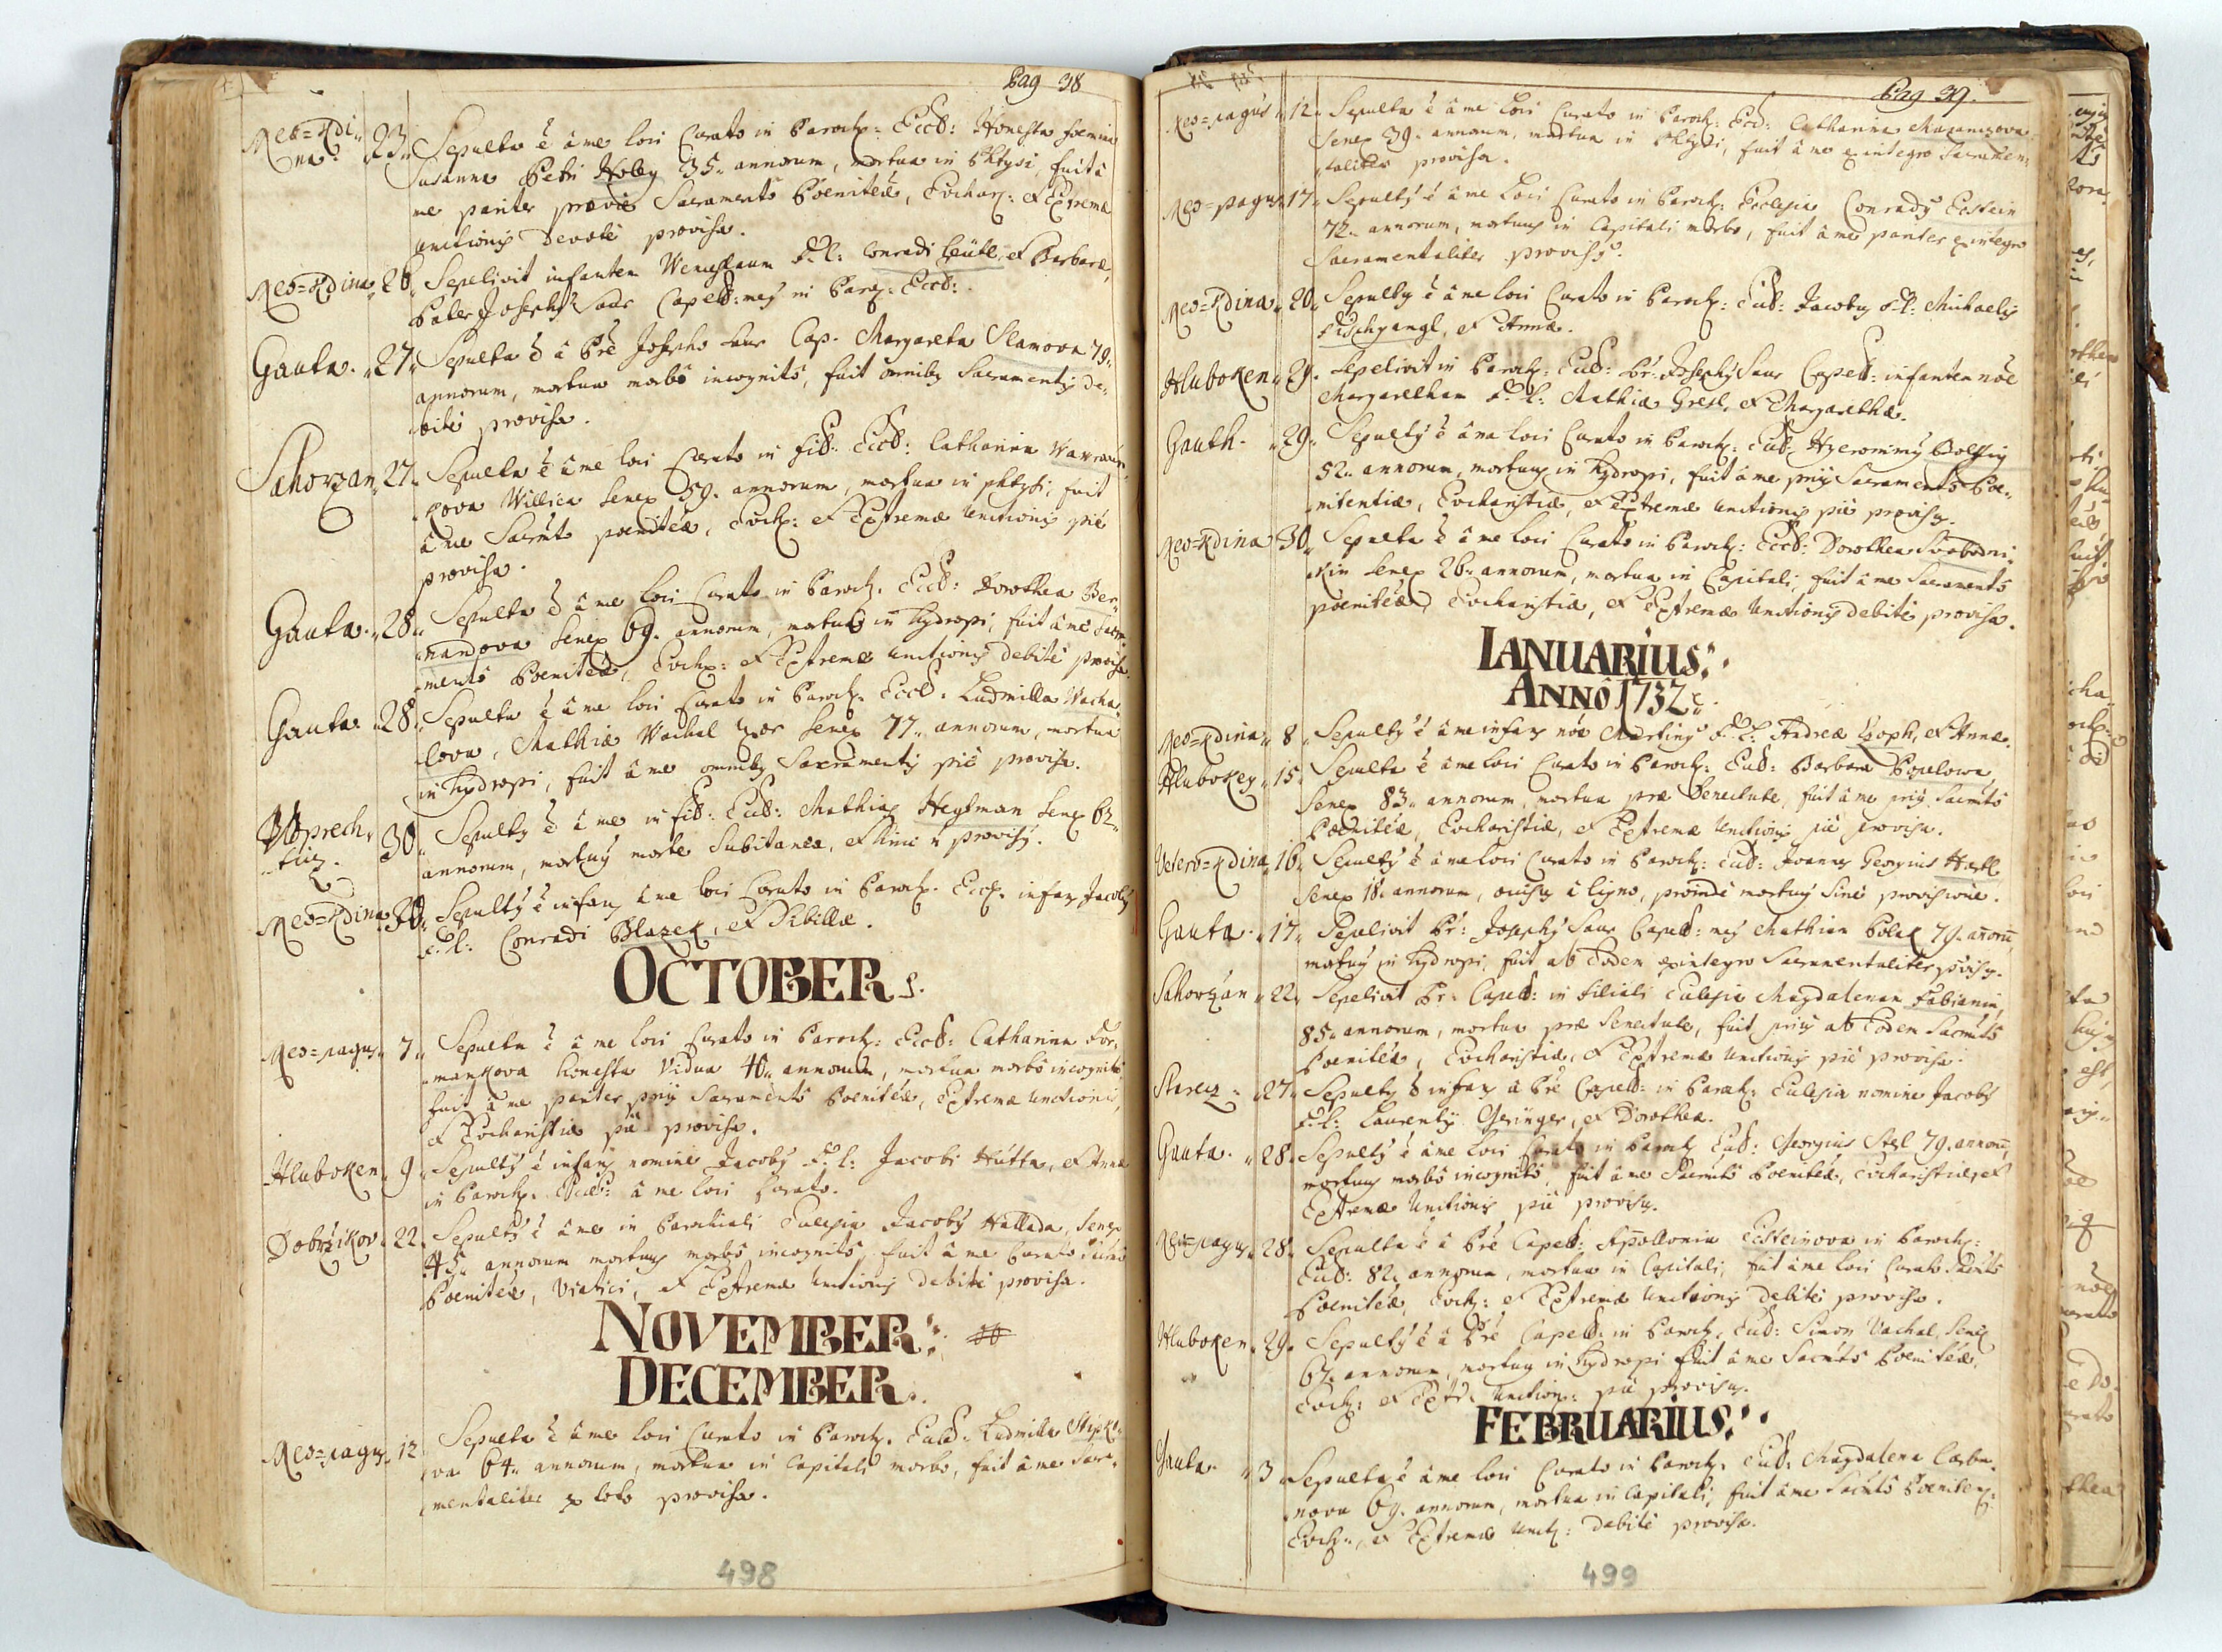 Pag 38
Neo=Kdi„
na. 23. Sepulta ẽ â me loci Curato in Paroch: Eccl: Honesta foemina
Susanna Petri Holey 35. annorum, mortua in Phtysi, fuit â
me pariter praevie Sacramento Poeniteae, Euchar: et Extremae
unctionis Devote provisa.
Neo=Kdina 26. Sepelivit infantem Wenceslaum F. L: Conradi Beütl, et Barbarae,
Pater Josephus Saur Capell: meus in Paroch: Eccl:
Gauta. 27. Sepulta ẽ â Pre Josepho Saur Cap. Margareta Slamova 79.
annorum, mortua morbo incognito, fuit omnibus Sacramentis de„
bite provisa.
Sahorzan 27. Sepulta ẽ â me loci Curato in fil: Eccl: Catharina Wavrauss„
kova Willica Senex 59. annorum, mortua in phtysi, fuit
â me Sacrmto poeniteae, Euch: et Extremae Unctionis pie
provisa.
Gauta. 28. Sepulta ẽ â me loci Curato in Paroch. Eccl: Dorothea Ber„
nandova Senex 69. annorum, mortua in hydropi, fuit â me Sacra„
mento Poeniteae, Euch: et Extremae Unctionis debite provisa
Gauta. 28. Sepulta ẽ â me loci Curato in Paroch. Eccl: Ludmilla Wacha„
lova, Mathiae Wachal Senex 77. annorum, mortua
in hydropi, fuit â me omnibus Sacramentis pie provisa.
Wprech„
tiz. 30. Sepultus ẽ â me in fil: Eccl: Mathias Heyman Senex 62.
annorum, mortuus morte Subitanea, provisus.
Neo=Kdina 30. Sepultus ẽ infans â me loci Curato in Paroch. Eccl: infans Jacobus
F. L: Conradi Blazek, et Sibillae.
OCTOBER.
Neo=pagus 7. Sepulta ẽ â me loci Curato in Paroch: Eccl: Catharina For„
mankova honesta Vidua 40. annorum, mortua morbo incognito,
fuit â me pariter prius Sacramento Poeniteae, Extremae Unctionis,
et Eucharistiae pie provisa.
Hluboken 9. Sepultus ẽ infans nomine Jacobus F. L: Jacobi Hutta, et Annae
in Paroch: Eccl: â me loci Curato.
Dobrzikov 22. Sepultus ẽ â me in Parochiali Ecclesia Jacobus Hallada, Senex
45. annorum mortuus morbo incognito, fuit â me Curato
Poeniteae, Viatici, et Extremae Unctionis debite provisa.
NOVEMBER:
DECEMBER.
Neo=pagus 12 Sepulta ẽ â me loci Curato in Paroch. Eccl. Ludmilla Stipko„
va 64. annorum, mortua in Capitali morbo, fuit â me Sacra„
mentaliter ex toto provisa.
498
Pag 39.
Neo=pagus 12. Sepulta ẽ â me loci Curato in Paroch: Eccl: Catharina Mazanczova
Senex 39. annorum, mortua in Phtysi, fuit â me ex integro Sacramen„
taliter provisa.
Neo=pagus 17. Sepultus ẽ â me Loci Curato in Paroch: Ecclesia Conradus Eckstein
72. annorum, mortuus in Capitali morbo, fuit â me pariter ex integro
Sacramentaliter provisus.
Neo=Kdina 20. Sepultus ẽ â me loci Curato in Paroch: Eccl: Jacobus F. L: Michaelis
Fischgangl, et Annae.
Hluboken 29. Sepelivit in Paroch: Eccl: Pr: Josephus Saur Capell: infantem noe
Margaretham F. L: Mathiae Gresl, et Margarethae.
Gauth. 29. Sepultus ẽ â me loci Curato in Paroch: Eccl: Hyeronimus Bolfing
52. annorum, mortuus in hydropi, fuit â me prius Sacramento Poe„
nitentiae, Eucharistiae, et Extremae Unctionis pie provisus.
Neo=Kdina 30. Sepulta ẽ â me loci Curato in Paroch: Eccl: Dorothea Svobodni„
kin Senex 26. annorum, mortua in Capitali, fuit â me Sacramento
poeniteae, Eucharistiae, et Extremae Unctionis debite provisa.
IANUARIUS:
ANNO 1732
Neo=Kdina 8 Sepultus ẽ â me infans noe Martinus F. L: Andreae Choph, et Annae.
Hlubokey 15. Sepulta ẽ â me loci Curato in Paroch: Eccl: Barbara Poslowa,
Senex 83. annorum, mortua prae Senectute, fuit â me prius Sacmto
Poeniteae, Eucharistiae, et Extremae Unctionis pie provisa.
Vetero=Kdina 16. Sepultus ẽ â me loci Curato in Paroch: Eccl: Joannes Georgius Hartl
Senex 18. annorum, occisus â ligno, proinde mortuus Sine provisione.
Gauta. 17. Sepelivit Pr: Josephus Saur Capell: meus Mathiam Polak 79. annoru,
mortuus in hydropi, fuit ab Eodem ex integro Sacramentaliter provisus.
Sahorzan 22. Sepelivit Pr: Capell: in Filiali Ecclesia Magdalenam Fabianin,
85. annorum, mortua prae Senectute, fuit prius ab Eodem Sacmto
Poeniteae, Eucharistiae, et Extremae Unctionis pie provisa.
Starecz 27. Sepultus ẽ infans â Pre Capell: in Paroch: Ecclesia nomine Jacobus
F. L: Laurentii Geringer, et Dorotheae.
Gauta. 28. Sepultus ẽ â me loci Curato in Paroch: Eccl: Georgius Stzl 79. annoru,
mortuus morbo incognito, fuit â me Sacmto Poeniteae, Eucharistiae, et
Extremae Unctionis pie provisus.
Neo=pagus 28. Sepulta ẽ â Pre Capell: Apollonia Ecksteinova in Paroch:
Eccl: 82. annorum, mortua in Capitali, fuit â me loci Curato Sacmto
Poeniteae, Euch: et Extremae Unctionis debite provisa.
Hluboken 29. Sepultus ẽ â Pre Capell: in Paroch: Eccl: Simon Vachal, Senex
67. annorum, mortuus in hydropi fuit â me Sacmto Poeniteae,
Euch: et Extr: Unction: pie provisus.
FEBRUARIUS:
Gauta. 3 Sepulta ẽ â me loci Curato in Paroch: Eccl: Magdalena Carba„
nova 69. annorum, mortua in Capitali, fuit â me Sacmto Poeniten:
Euch: et Extremae Unct: debite provisa.
499